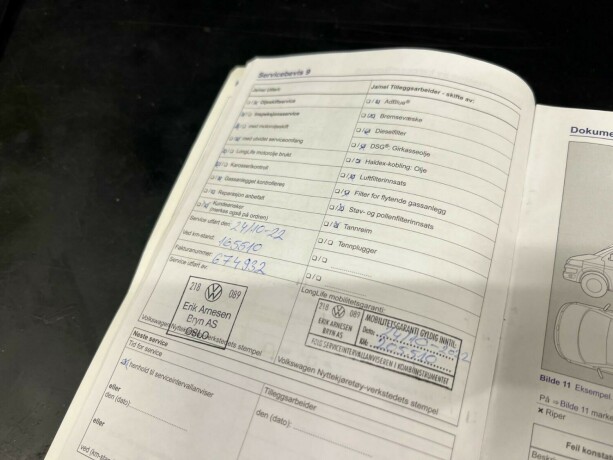 Servicebevis 9
Ja/nei Utført
□/□ Oljeskiftservice
□/□ Inspeksjonsservice
□/□ med motoroljeskift
□/□ med utvidet serviceomfang
□/□ LongLife motorolje brukt
□/□ Karosserikontroll
□/□ Gassanlegget kontrolleres
□/□ Reparasjon anbefalt
□/□ Kundeønsker
(merkes også på ordren)
Service utført den: 24/10-22
ved km-stand: 165510
Fakturanummer: 674932
Service utført av:
218 089
Erik Arnesen
Bryn AS
OSLO
Volkswagen Nyttekjøretøy-verkstedets stempel
Ja/nei Tilleggsarbeider - skifte av:
□/□ AdBlue®
□/□ Bremsevæske
□/□ Dieselfilter
□/□ DSG®: Girkasseolje
□/□ Haldex-kobling: Olje
□/□ Luftfilterinnsats
□/□ Filter for flytende gassanlegg
□/□ Støv- og pollenfilterinnsats
□/□ Tannreim
□/□ Tennplugger
□/□
□/□
LongLife mobilitetsgaranti:
218 089
ERIK ARNESEN
BRYN AS
MOBILITETSGARANTI GYLDIG INNTIL:
Dato:
KM:
FØLG SERVICEINTERVALLANVISEREN I KOMBIINSTRUMENTET
Volkswagen Nyttekjøretøy-verkstedets stempel
Neste service
Tid for service
henhold til serviceintervallanviser
eller
den (dato):
eller
ved (km-stand)
Tilleggsarbeider
den (dato):
Dokume
Bilde 11 Eksempel.
På ⇒ Bilde 11 marke
✕ Riper
Feil konstat
Beskri